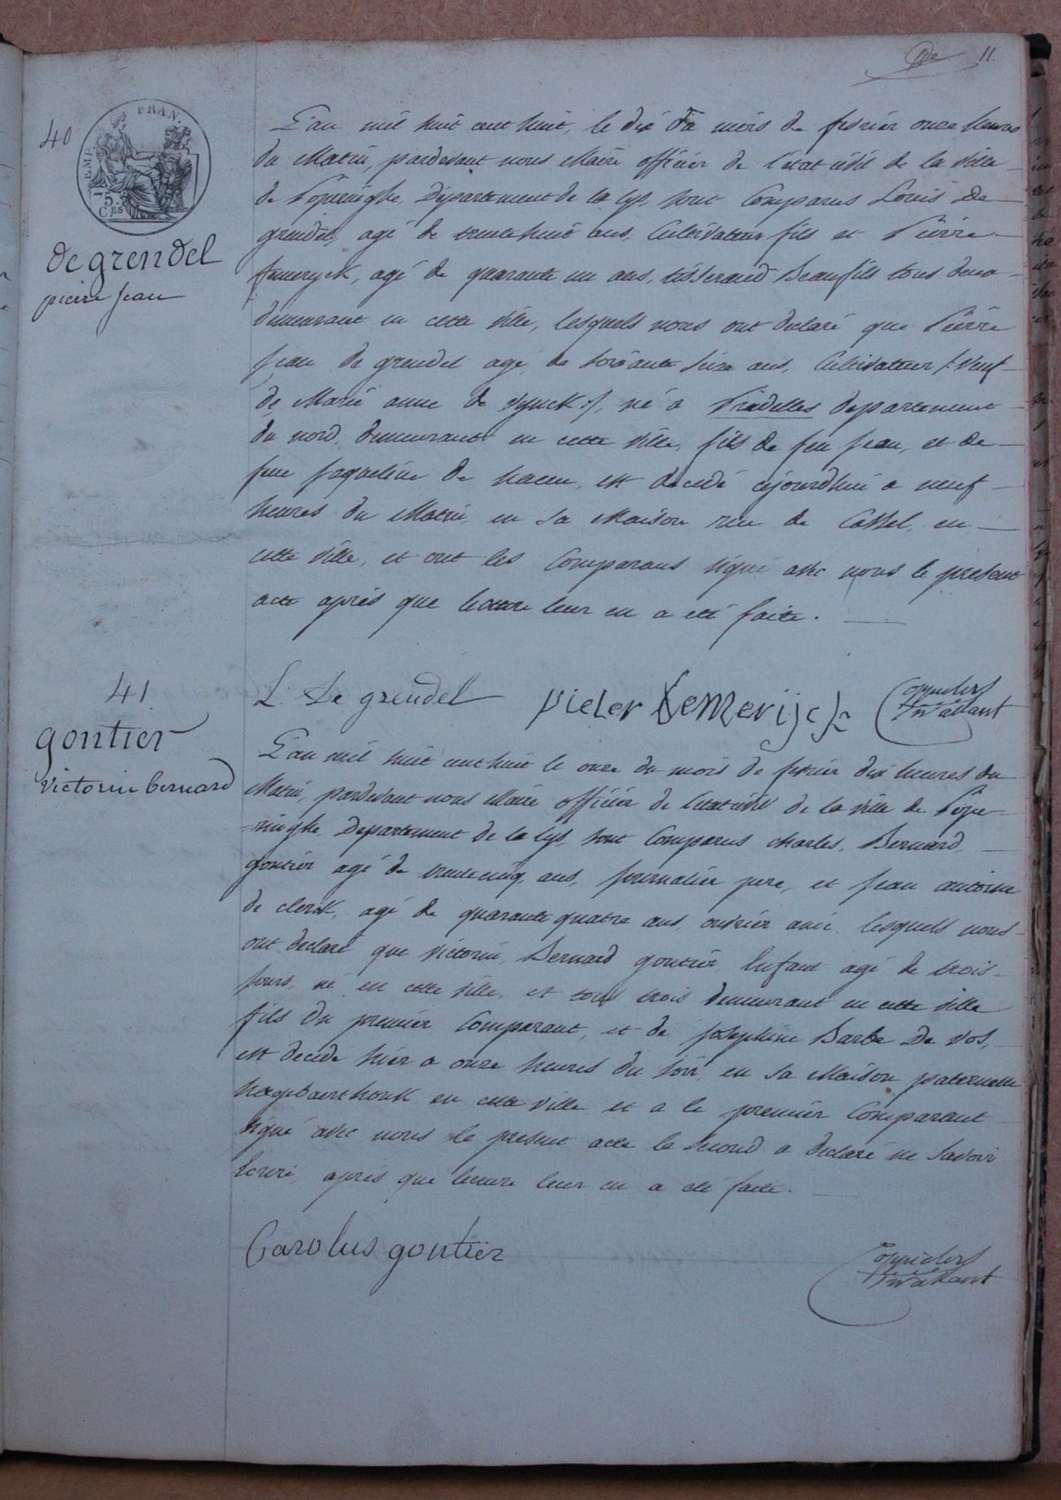 11
40
EMP. FRAN.
75.
Ces
de grendel
pieire jean
L'an mil huit cent huit, le dix du mois de fevrier onze heures
du Matin, pardevant nous Maire officier de l'etat civil de la ville
de Poperinghe, Departement de la lys, sont Comparus Louis De
grendel, agé de trente huit ans, Cultivateur fils et Pierre
agé de quarante un ans, Beaufils tous deux
demeurant en cette ville, lesquels nous ont declaré que Pierre
Jean de grendel agé de soixante seize ans, Cultivateur /: veuf
de Marie anne de :/, né a Pradelles departement
du nord, demeurant en cette ville, fils de feu jean, et de
feue jaqueline de haene, est decedé cejourdhui a neuf
heures du Matin, en sa Maison rue de Cassel, en
cette ville, et ont les Comparans signé avec nous le present
acte après que lecture leur en a été faite.
L. De grendel pieter
41
gontier
victorin bernard
L'an mil huit cent huit le onze du mois de fevrier dix heures du
Matin, pardevant nous Maire officier de l'etat civil de la ville de Pope-
ringhe Departement de la lys, sont Comparus charles, Bernard
gontier agé de trente cinq ans, journalier pere, et jean antoine
de clerck, agé de quarante quatre ans ouvrier ami lesquels nous
ont declaré que victorin, Bernard gontier Enfant agé de trois
jours, né en cette ville, et tous trois demeurant en cette ville
fils du premier Comparant, et de Josephine Barbe De vos,
est decedé hier a onze heures du soir en sa Maison paternelle
en cette ville et a le premier Comparant
signé avec nous le present acte le second a declaré ne savoir
Ecrire, après que lecture leur en a été faite.
Carolus gontier